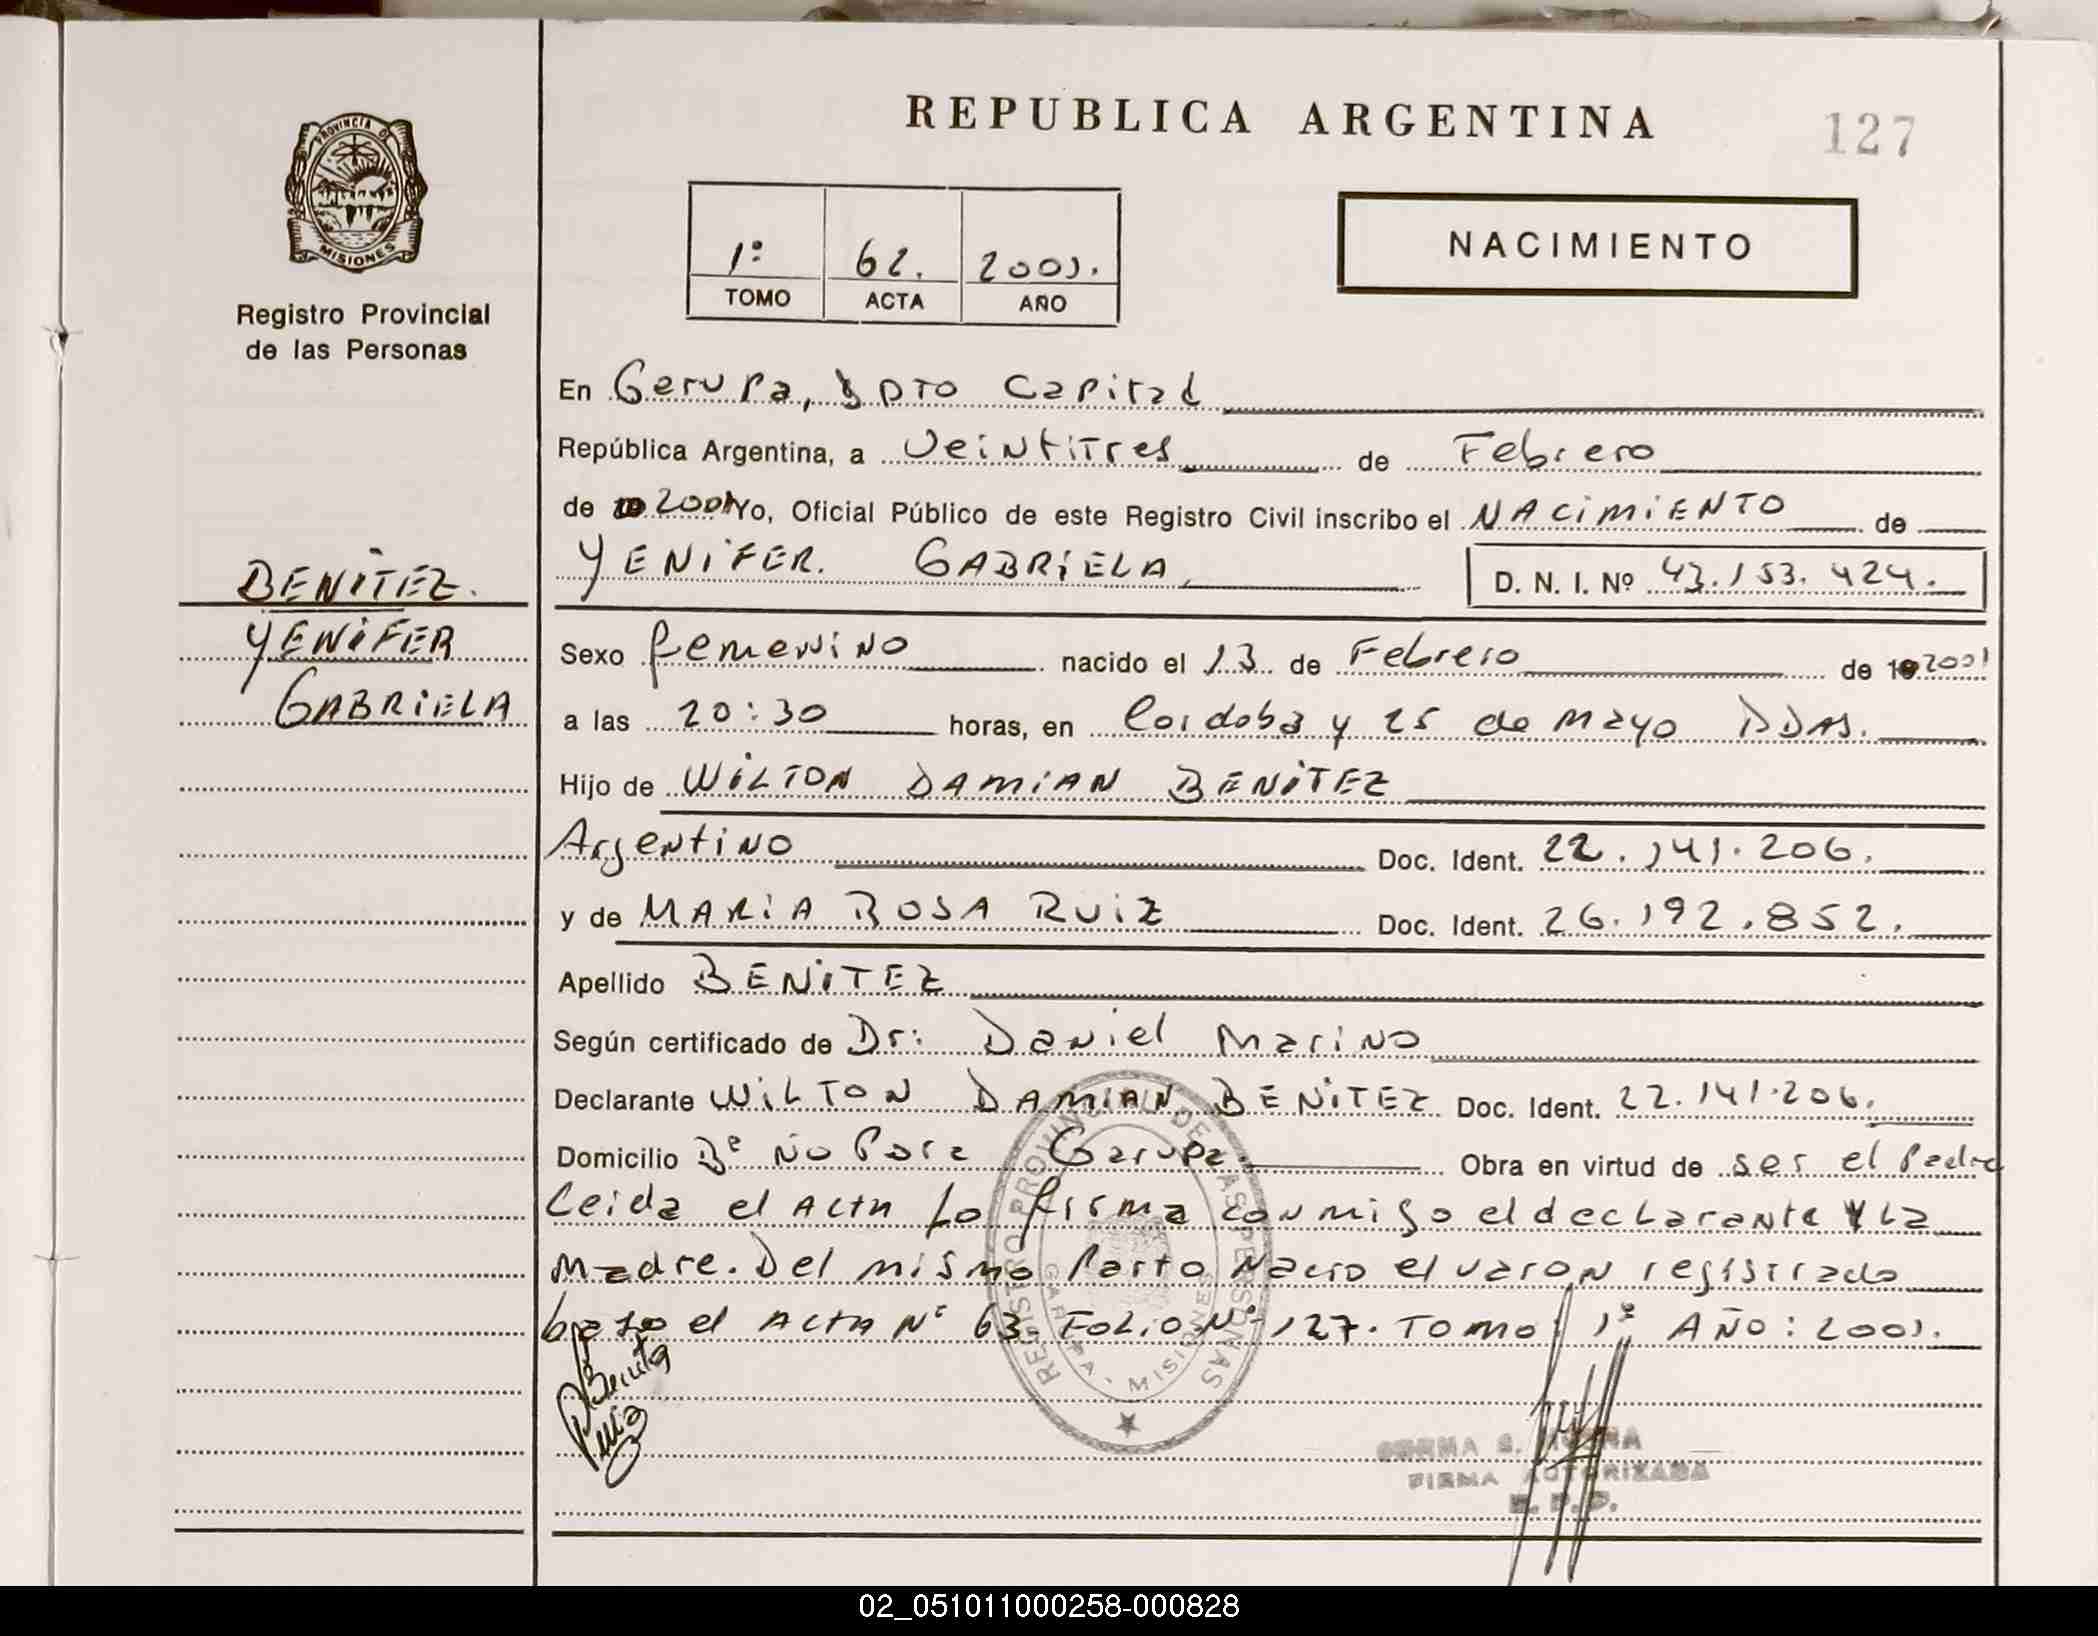 REPUBLICA ARGENTINA
127
PROVINCIA D
MISIONES
Registro Provincial
de las Personas
1º 62. 2001.
TOMO ACTA AÑO
NACIMIENTO
En Gerupa, DTO Capital
República Argentina, a Veintitres de Febrero
de 2001 Yo, Oficial Público de este Registro Civil inscribo el NACIMIENTO de
YENIFER. GABRIELA, D. N. I. Nº 43.153.424.
BENITEZ.
YENIFER
GABRIELA
Sexo femenino nacido el 13 de Febrero de 2001
a las 20:30 horas, en Cordoba y 25 de Mayo PDAS.
Hijo de WILTON DAMIAN BENITEZ
Argentino Doc. Ident. 22.141.206.
y de MARIA ROSA RUIZ Doc. Ident. 26.192.852.
Apellido BENITEZ
Según certificado de Dr: Daniel Marino
Declarante WILTON DAMIAN BENITEZ Doc. Ident. 22.141.206.
Domicilio Bº Ño Pora Garupa. Obra en virtud de ser el Padre
Leida el ACTA Lo firma conmigo el declarante Y La
Madre. Del mismo Parto Nacio el varon registrado
bajo el ACTA Nº 63. FOLIO Nº 127. TOMO 1º AÑO: 2001.
REGISTRO PROVINCIAL DE LAS PERSONAS
GARUPA - MISIONES
FIRMA AUTORIZADA
02_051011000258-000828